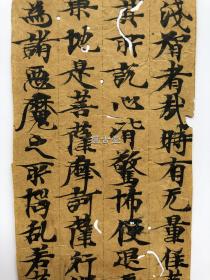 淺智者哉時有无量
其所說心皆驚怖便退
地是菩薩摩訶薩行
為諸惡魔之所惱亂若